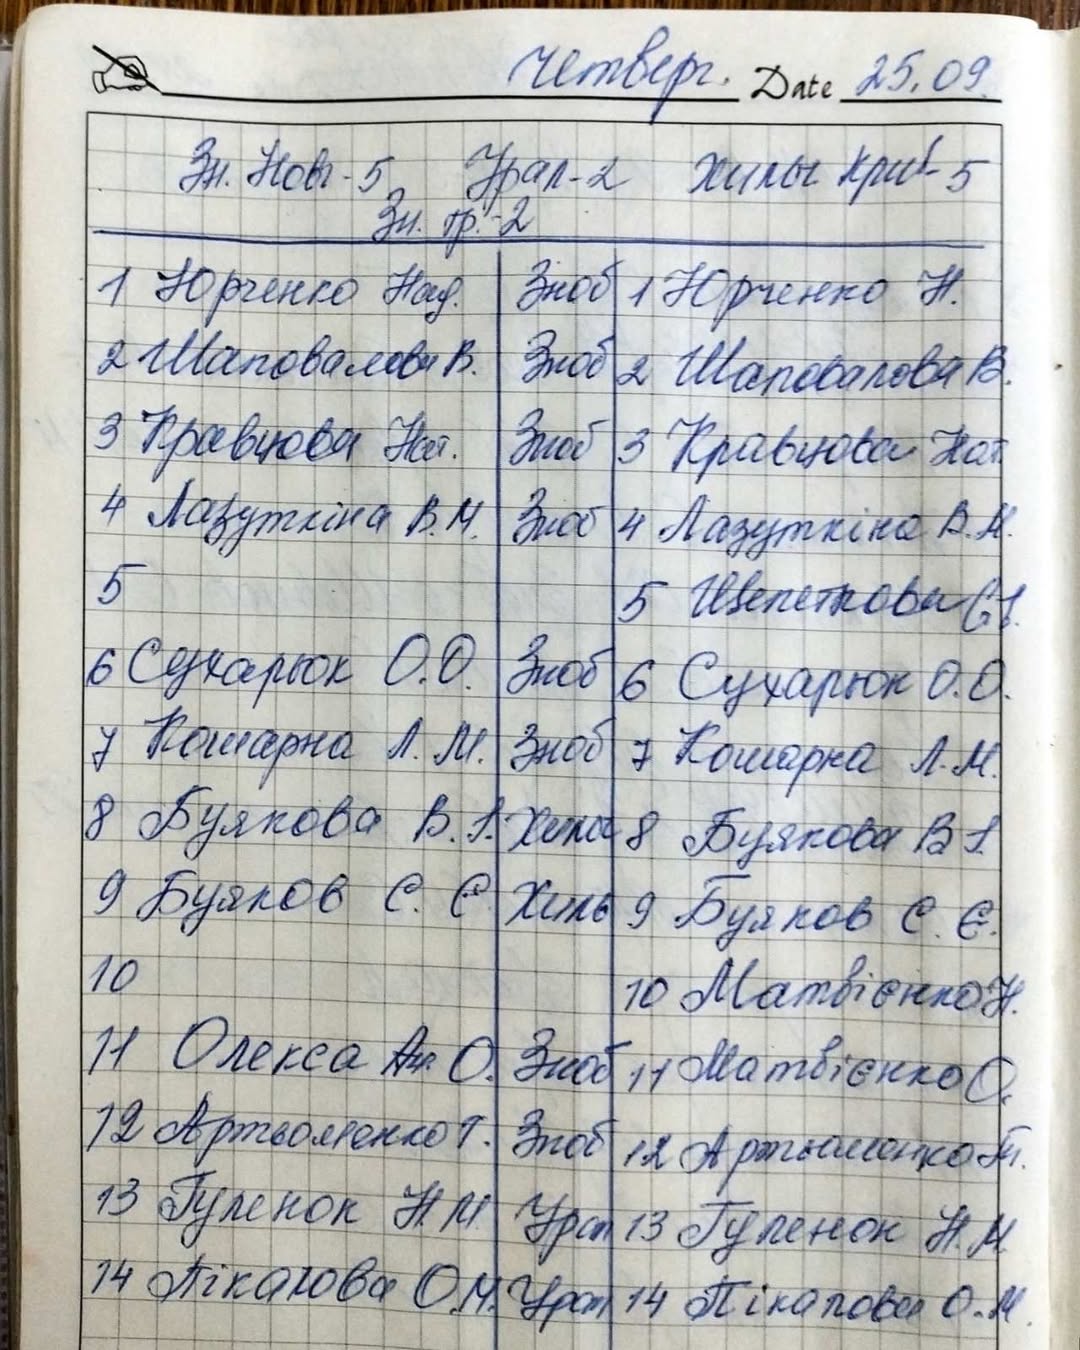 Четверг. Date 25.09.
Зн. Новг-5 Урал-2 Хильч Крив-5
Зн. гр.-2
1 Юрченко Над. Зноб 1 Юрченко Н.
2 Шаповалова В. Зноб 2 Шаповалова В.
3 Кравцова Нат. Зноб 3 Кравцова Нат
4 Лазуткіна В.М. Зноб 4 Лазуткіна В.М.
5 5 Щепеткова
6 Сухарюк О.О. Зноб 6 Сухарюк О.О.
7 Кошарна Л.М. Зноб 7 Кошарна Л.М.
8 Буякова В.І. 8 Буякова В І.
9 Буяков Є. Є Хиль 9 Буяков Є. Є.
10 10 Матвієнко Н.
11 Олекса Ан. О. Зноб 11 Матвієнко О.
12 Артьоменко Т. Зноб 12 Артьоменко Т.
13 Гуленок Н.М. Урал 13 Гуленок Н.М.
14 Пікалова О.М. Урал 14 Пікалова О.М.